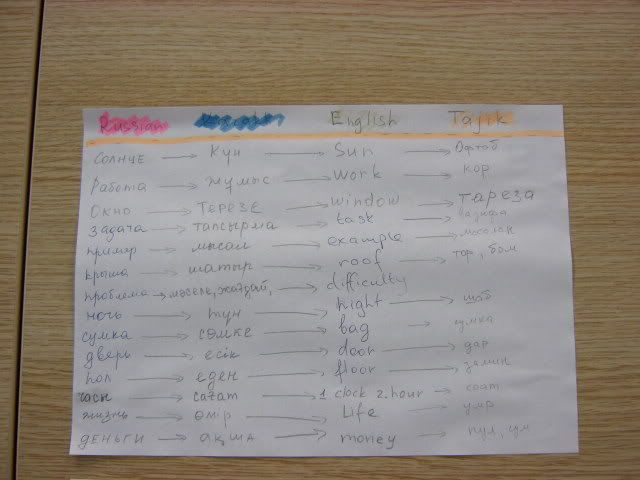 Russian Kazakh English Tajik
солнце → күн → Sun → Офтоб
Работа → жұмыс → work → кор
Окно → Терезе → window → тареза
задача → тапсырма → task → вазифа
пример → мысал → example →
крыша → шатыр → roof → тор, бом
проблема → мәселе, жағдай, → difficulty
ночь → түн → night → шаб
сумка → сөмке → bag → сумка
дверь → есік → door → дар
пол → еден → floor → замин
часы → сағат → 1 clock 2. hour → соат
жизнь → өмір → Life → умр
деньги → ақша → money → пул, сум